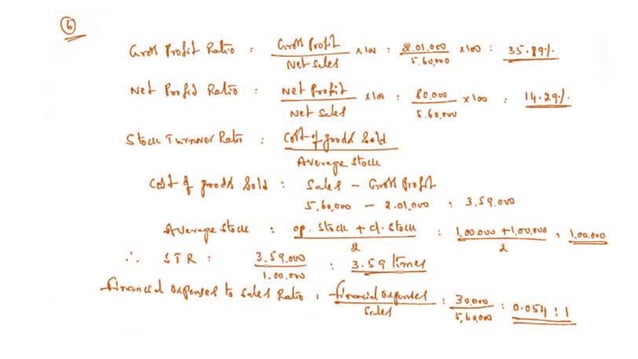 6
Gross Profit Ratio : Gross Profit / Net Sales x100 : 2,01,000 / 5,60,000 x100 : 35.89%
Net Profit Ratio : Net Profit / Net Sales x100 : 80,000 / 5,60,000 x100 : 14.29%
Stock Turnover Ratio : Cost of goods Sold / Average Stock
Cost of goods Sold : Sales - Gross Profit
5,60,000 - 2,01,000 : 3,59,000
Average Stock : op. Stock + cl. Stock / 2 : 1,00,000 + 1,00,000 / 2 : 1,00,000
∴ STR : 3,59,000 / 1,00,000 : 3.59 times
Financial expenses to Sales Ratio : Financial expenses / Sales : 30,000 / 5,60,000 : 0.054 : 1